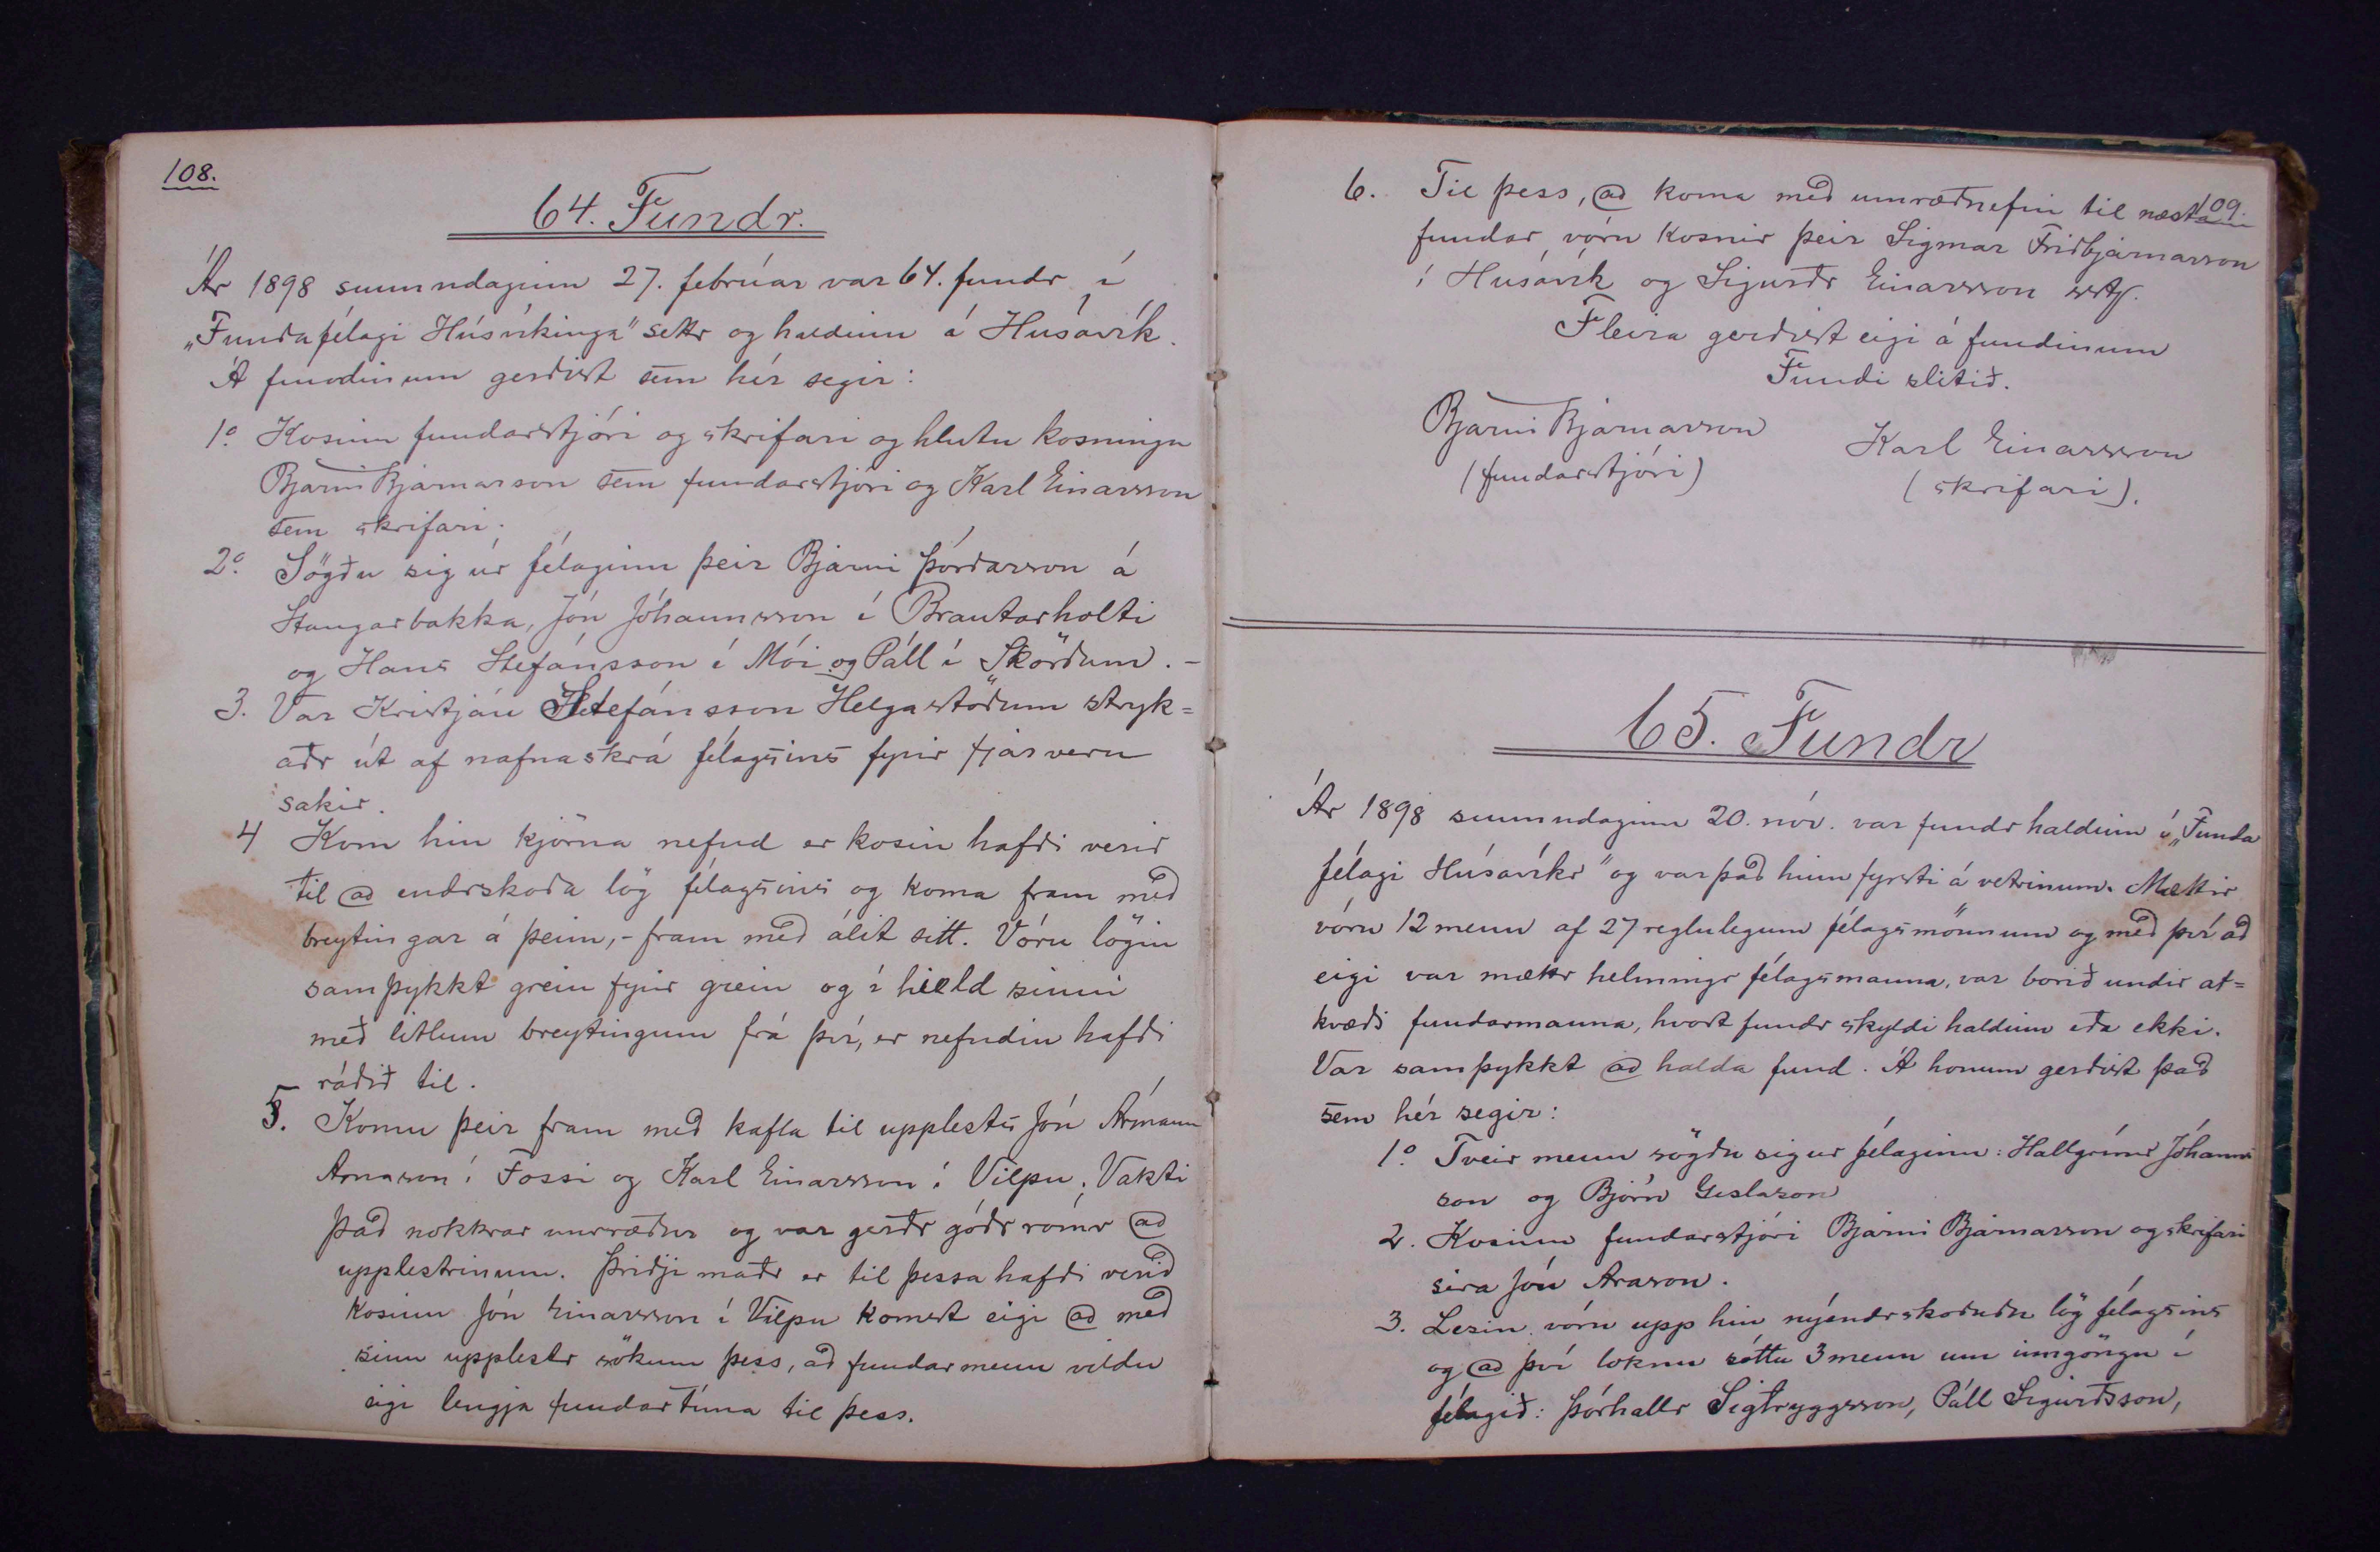 108.
64. Fundr.
Ár 1898 sunnudaginn 27. febrúar var 64. fundr í
„Fundafélagi Húsvíkinga" settr og haldinn á Húsavík.
Á fundinum gerðist sem hér segir:
1º. Kosinn fundarstjóri og skrifari og hlutu kosningu
Bjarni Bjarnarson sem fundarstjóri og Karl Einarsson
sem skrifari.
2º. Sögðu sig úr félaginu þeir Bjarni Þórðarson á
Stangarbakka, Jón Jóhannsson í Brautarholti
og Hans Stefánsson í Mói og Páll í Skörðum. -
3. Var Kristján Stefánsson Helgastöðum stryk=
aðr út af nafnaskrá félagsins fyrir fjárveru
sakir.
4 Kom hin kjörna nefnd er kosin hafði verið
til að endrskoða lög félagsins og koma fram með
breytingar á þeim, - fram með álit sitt. Vóru lögin
samþykkt grein fyrir grein og í hield sinni
með litlum breytingum frá því, er nefndin hafði
ráðið til.
5. Komu þeir fram með kafla til upplestrs Jón Ármann
Árnason í Fossi og Karl Einarsson í Vilpu; Vakti
það nokkrar umræður og var gerðr góðr rómr að
upplestrinum. Þriðji maðr er til þessa hafði verið
kosinn Jón Einarsson í Vilpu komst eigi að með
sinn upplestr sökum þess, að fundarmenn vildu
eigi lengja fundartíma til þess.
109.
6. Til þess, að koma með umræðnefni til næsta
fundar vóru kosnir þeir Sigmar Friðbjarnarson
í Húsavík og Sigurðr Einarsson sst.
Fleira gerðist eigi á fundinum
Fundi slitið.
Bjarni Bjarnarson Karl Einarsson
(fundarstjóri) (skrifari).
65. Fundr
Ár 1898 sunnudaginn 20. nóv. var fundr haldinn í „Funda
félagi Húsavíkr" og var það hinn fyrsti á vetrinum. Mættir
vóru 12 menn af 27 reglulegum félagsmönnum og með því að
eigi var mættr helmingr félagsmanna, var borið undir at=
kvæði fundarmanna, hvort fundr skyldi haldinn eða ekki.
Var samþykkt að halda fund. Á honum gerðist það
sem hér segir:
1º. Tveir menn sögðu sig ur félaginu: Hallgrímr Jóhanns
son og Björn Gíslason
2. Kosinn fundarstjóri Bjarni Bjarnarson og skrifari
síra Jón Arason.
3. Lesin vóru upp hin nýendrskoðuðu lög félagsins
og að því loknu sóttu 3 menn um inngöngu í
félagið: Þórhallr Sigtryggsson, Páll Sigurðsson,